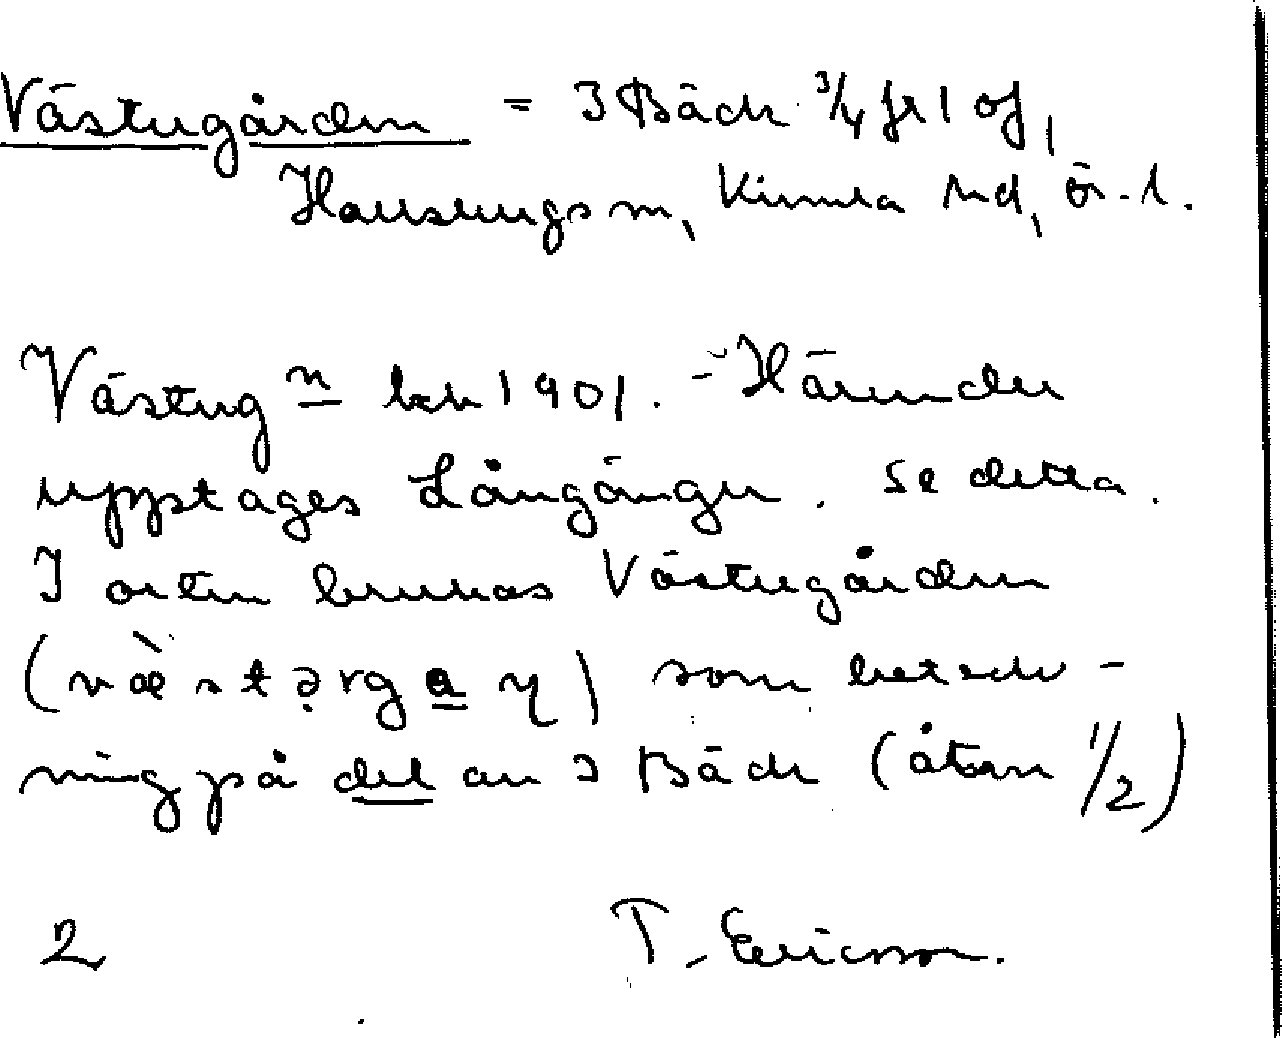 Västergården = 3 Bäck 3/4 fr 1 of,
Hallstugs m, Kumla hd, ör. l.
Västerg n krk 1901. - Härunder
upptages Långänger. Se detta.
I orten brukas Västergården
(væ̀stərgaɳ) som beteck-
ning på del av 3 Bäck (åtan 1/2)
2 T. Ericsson.